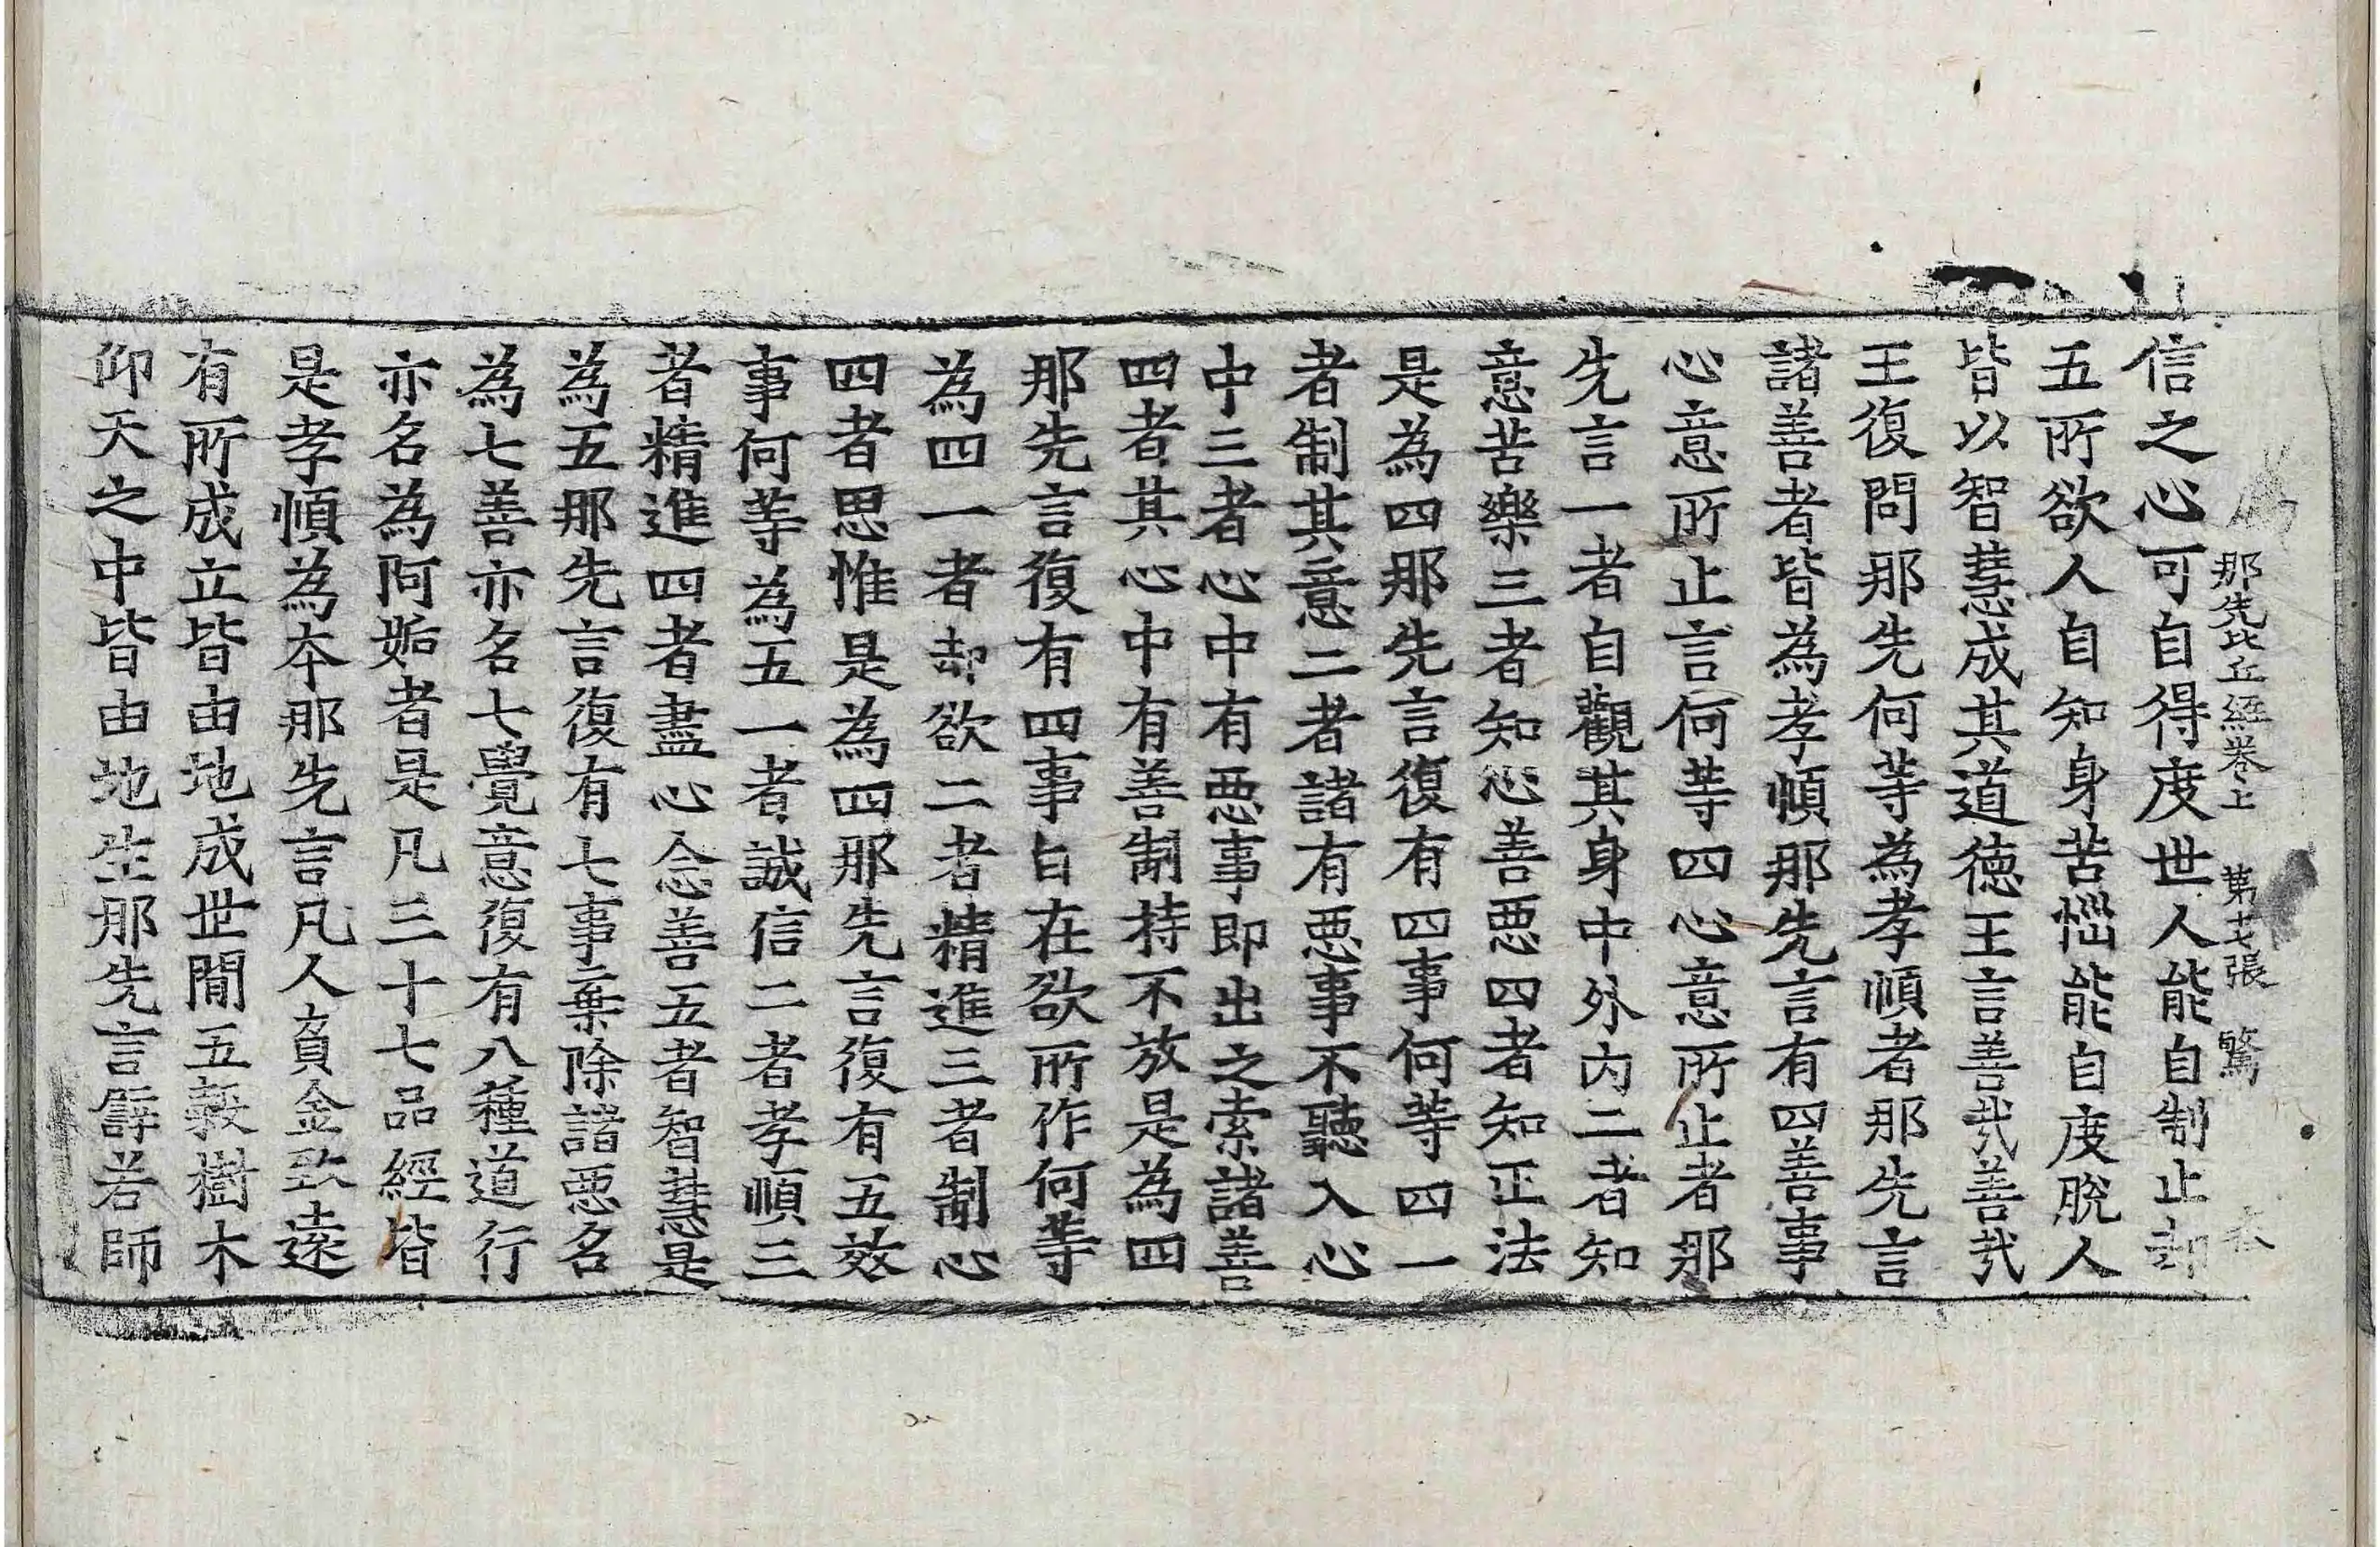 那先比丘經卷上 第十七張 驚
信之心可自得度世人能自制止却
五所欲人自知身苦惱能自度脫人
皆以智慧成其道德王言善哉善哉
王復問那先何等為孝順者那先言
諸善者皆為孝順那先言有四善事
心意所止言何等四心意所止者那
先言一者自觀其身中外內二者知
意苦樂三者知心善惡四者知正法
是為四那先言復有四事何等四一
者制其意二者諸有惡事不聽入心
中三者心中有惡事即出之索諸善
四者其心中有善制持不放是為四
那先言復有四事自在欲所作何等
為四一者却欲二者精進三者制心
四者思惟是為四那先言復有五效
事何等為五一者誠信二者孝順三
者精進四者盡心念善五者智慧是
為五那先言復有七事棄除諸惡名
為七善亦名七覺意復有八種道行
亦名為阿姤者是凡三十七品經皆
是孝順為本那先言凡人負金致遠
有所成立皆由地成世間五穀樹木
仰天之中皆由地生那先言譬若師